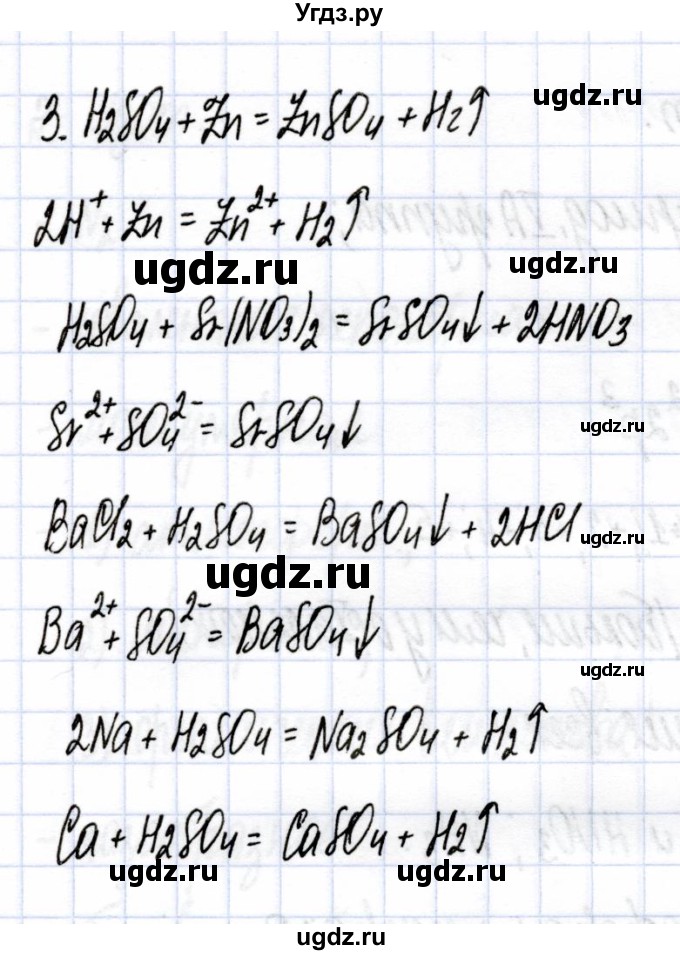 Угдз.ру
ugdz.ru
3. H₂SO₄ + Zn = ZnSO₄ + H₂↑
2H⁺ + Zn = Zn²⁺ + H₂↑
ugdz.ru ugdz.ru
H₂SO₄ + Sr(NO₃)₂ = SrSO₄↓ + 2HNO₃
Sr²⁺ + SO₄²⁻ = SrSO₄↓
ugdz.ru
BaCl₂ + H₂SO₄ = BaSO₄↓ + 2HCl
ugdz.ru
ugdz.ru
Ba²⁺ + SO₄²⁻ = BaSO₄↓
ugdz.ru
2Na + H₂SO₄ = Na₂SO₄ + H₂↑
Ca + H₂SO₄ = CaSO₄ + H₂↑
ugdz.ru ugdz.ru
ugdz.ru